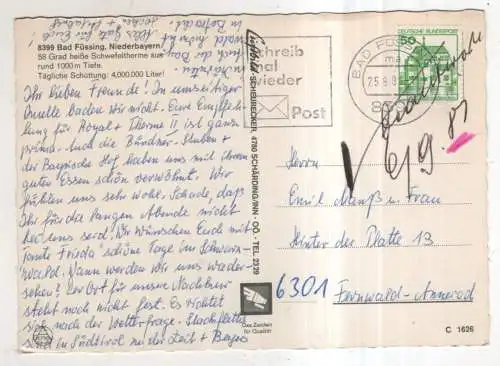 8399 Bad Füssing, Niederbayern
58 Grad heiße Schwefeltherme aus
rund 1000 m Tiefe.
Tägliche Schüttung: 4,000.000 Liter!
Ihr lieben Freunde! In umseitiger
Quelle baden wir noch. Eure Empfeh-
lung für Royal + Therme II ist ganz
prima. Auch die Zündner-Stuben +
der Bayrische Hof haben uns mit ihrem
guten Essen schön verwöhnt. Wir
fühlen uns sehr wohl. Schade, daß
Ihr für die langen Abende nicht
bei uns seid. Wir wünschen Euch mit
Tante Frieda schöne Tage im Schwarz-
wald. Wann werden wir uns wieder-
sehen? Der Ort für unsere Nachkur
steht noch nicht fest. Es richtet
sich nach der Wetterfrage. Stachfletts
sind in Südtirol mit der Zeit +
SCHEURECKER, 4780 SCHÄRDING/INN - OÖ. - TEL. 2329
Das Zeichen
für Qualität
Schreib
mal
wieder
Post
BAD FÜSSING
DEUTSCHE BUNDESPOST
50
6/9. 81
Herrn
Emil und Frau
Hinter der Platte 13
6301 Fernwald-Annerod
C 1626